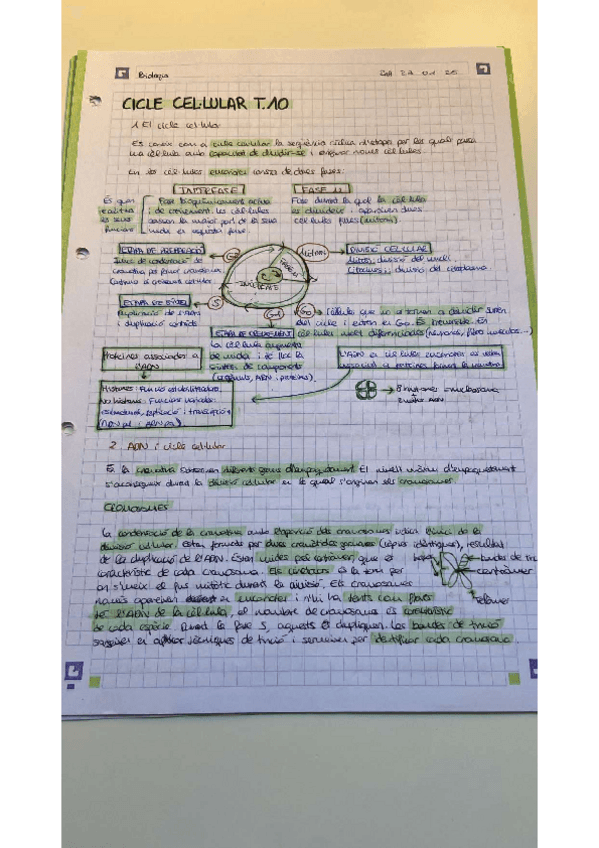 Biologia
CICLE CEL·LULAR T.10
1. El cicle cel·lular
Es coneix com a cicle cel·lular la seqüència cíclica d'etapes per les quals passa
una cèl·lula amb capacitat de dividir-se i originar noves cèl·lules.
En les cèl·lules eucariotes consta de dues fases:
INTERFASE
FASE M
Es quan
realitza
les seves
funcions
Fase bioquímicament activa
i de creixement. Les cèl·lules
passen la major part de la seva
vida en aquesta fase.
Fase durant la qual la cèl·lula
es divideix i apareixen dues
cèl·lules filles (mitosi)
ETAPA DE PREPARACIÓ
Inici de condensació de
cromatina per formar cromosomes.
G2
Mitosi
INTERFASE
FASE M
DIVISIÓ CEL·LULAR
Mitosi: divisió del nucli.
Citocinesi: divisió del citoplasma.
ETAPA DE SÍNTESI
Duplicació de l'ADN
i duplicació centríols
S
G1
G0
Cèl·lules que no tornen a dividir surten
del cicle i entren en G0. És irreversible. En
cèl·lules molt diferenciades (neurones, fibra musculars...)
ETAPA DE CREIXEMENT
La cèl·lula augmenta
de mida i té lloc la
síntesi de components
(orgànuls, ARN i proteïnes).
Proteïnes associades a
l'ADN
Histones: Funció estabilitzadora.
No histones: Funcions variades:
estructural, replicació i transcripció
L'ADN a cèl·lules eucariotes es troba
associat a proteïnes formant la cromatina
8 histones = nucleosoma
2. ADN i cicle cel·lular
En la cromatina s'observen diferents graus d'empaquetament. El nivell màxim d'empaquetament
s'aconsegueix durant la divisió cel·lular en la qual s'originen els cromosomes.
CROMOSOMES
La condensació de la cromatina amb l'aparició dels cromosomes indica l'inici de la
divisió cel·lular. Estan formats per dues cromàtides germanes (còpies idèntiques), resultat
de la duplicació de l'ADN. Estan unides pel centròmer que és
característic de cada cromosoma. Els cinetocors és la zona per
on s'uneix el fus mitòtic durant la divisió. Els cromosomes
només apareixen a eucariotes i n'hi ha tants com
de l'ADN de la cèl·lula, el nombre de cromosomes és característic
de cada espècie. Durant la fase S, aquests es dupliquen. Les bandes de tinció
sorgeixen en aplicar tècniques de tinció i serveixen per identificar cada cromosoma.
centròmer
telòmer